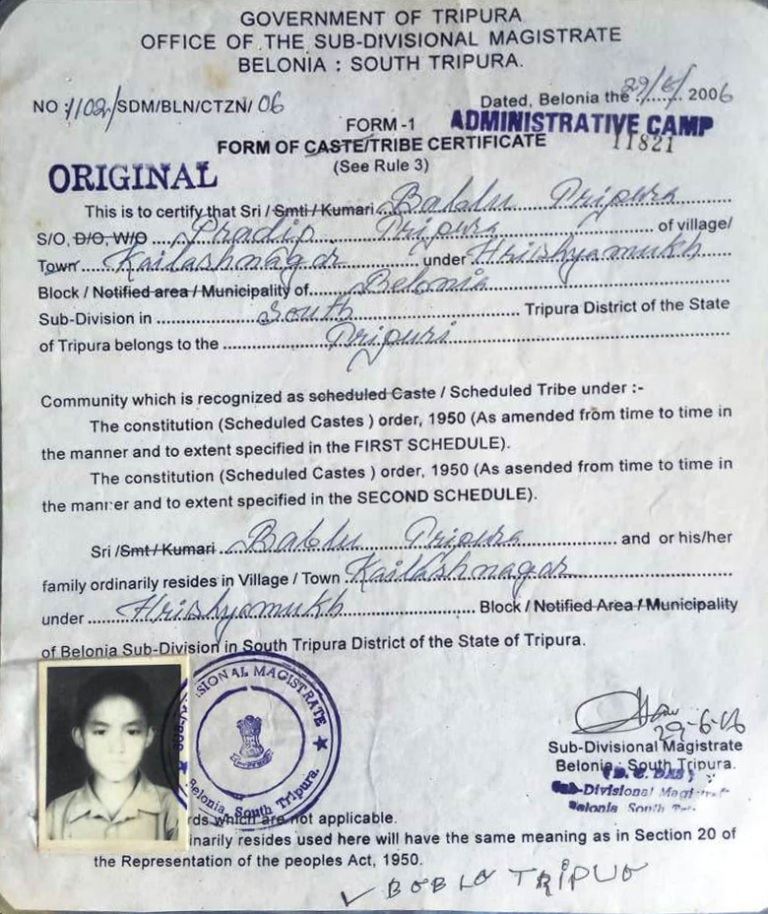 GOVERNMENT OF TRIPURA
OFFICE OF THE SUB-DIVISIONAL MAGISTRATE
BELONIA : SOUTH TRIPURA.
NO :1102/SDM/BLN/CTZN/ 06
Dated, Belonia the 29/6/ 2006
FORM -1
ADMINISTRATIVE CAMP
11821
FORM OF CASTE/TRIBE CERTIFICATE
(See Rule 3)
ORIGINAL
This is to certify that Sri / Smti / Kumari Bablu Tripura
S/O, D/O, W/O Pradip Tripura of village/
Town Kailashnagar under Hrishyamukh
Block / Notified area / Municipality of Belonia
Sub-Division in South Tripura District of the State
of Tripura belongs to the Tripuri
Community which is recognized as scheduled Caste / Scheduled Tribe under :-
The constitution (Scheduled Castes ) order, 1950 (As amended from time to time in
the manner and to extent specified in the FIRST SCHEDULE).
The constitution (Scheduled Castes ) order, 1950 (As asended from time to time in
the manner and to extent specified in the SECOND SCHEDULE).
Sri /Smt / Kumari Bablu Tripura and or his/her
family ordinarily resides in Village / Town Kailashnagar
under Hrishyamukh Block / Notified Area / Municipality
of Belonia Sub-Division in South Tripura District of the State of Tripura.
SIONAL MAGISTRATE
Belonia, South Tripura.
29-6-06
Sub-Divisional Magistrate
Belonia : South Tripura.
Sub-Divisional
Belonia South
rds which are not applicable.
inarily resides used here will have the same meaning as in Section 20 of
the Representation of the peoples Act, 1950.